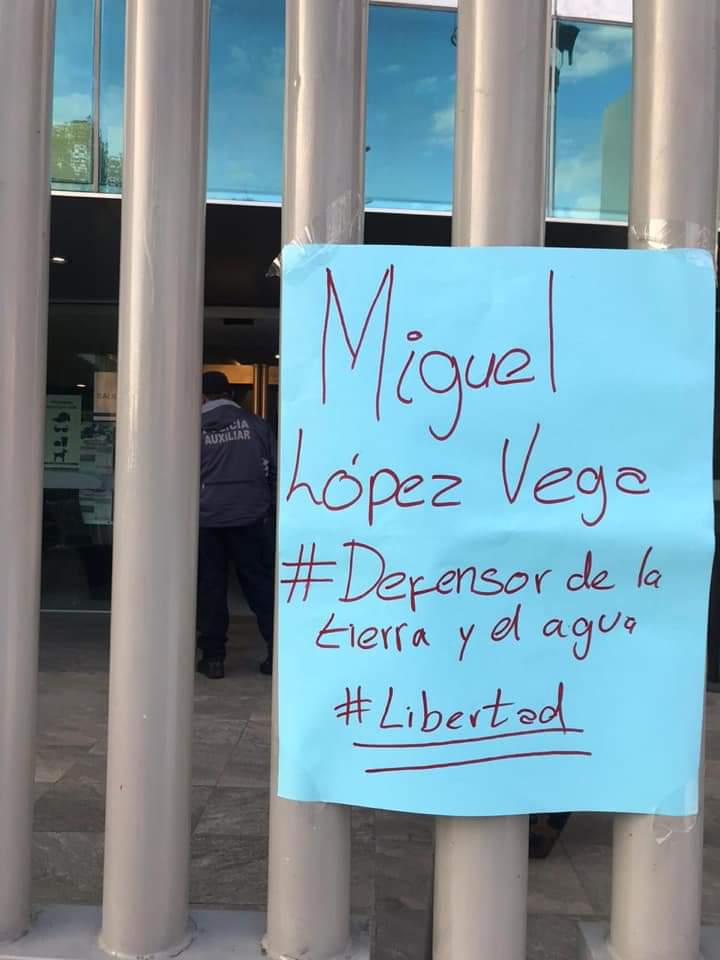 POLICIA
AUXILIAR
Miguel
López Vega
#Defensor de la
tierra y el agua
#Libertad